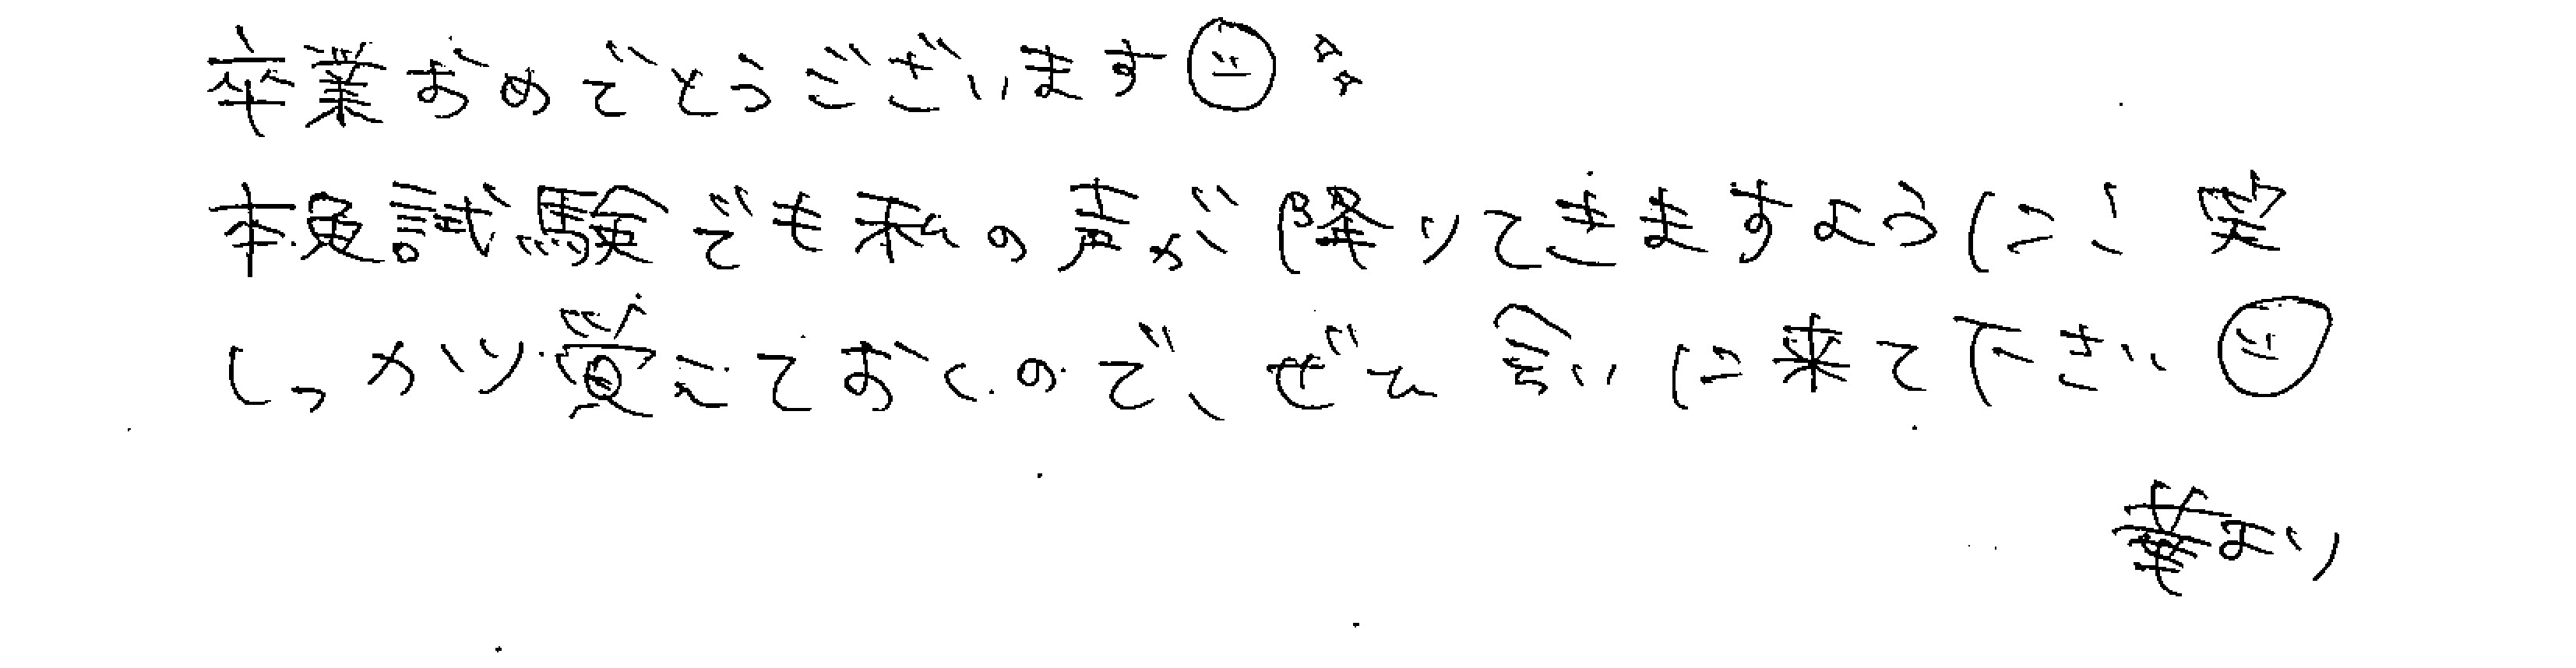 卒業おめでとうございます☺☆☆
本免試験でも私の声が降りてきますように! 笑
しっかり覚えておくので、ぜひ会いに来て下さい☺
華より